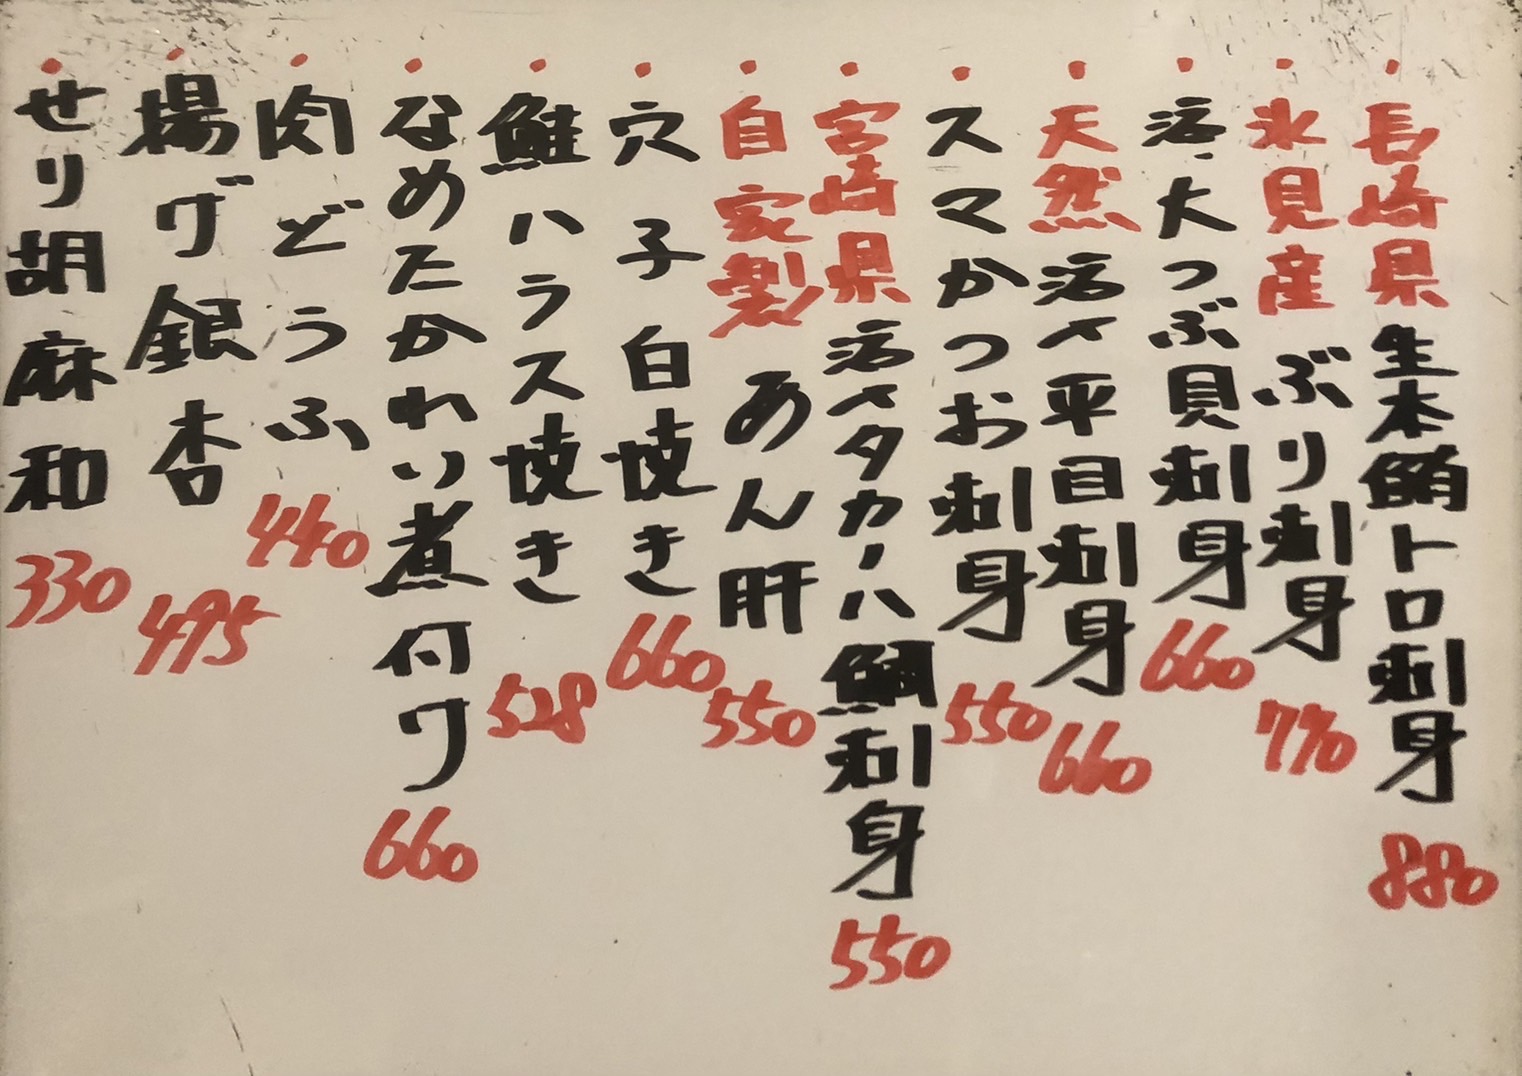 ・長崎県生本鮪トロ刺身 880
・氷見産ぶり刺身 770
・活、大つぶ貝刺身 660
・天然活〆平目刺身 660
・スマかつお刺身 550
・宮崎県活〆タカノハ鯛刺身 550
・自家製あん肝 550
・穴子白焼き 660
・鮭ハラス焼き 528
・なめたかれい煮付け 660
・肉どうふ 440
・揚げ銀杏 495
・せり胡麻和 330